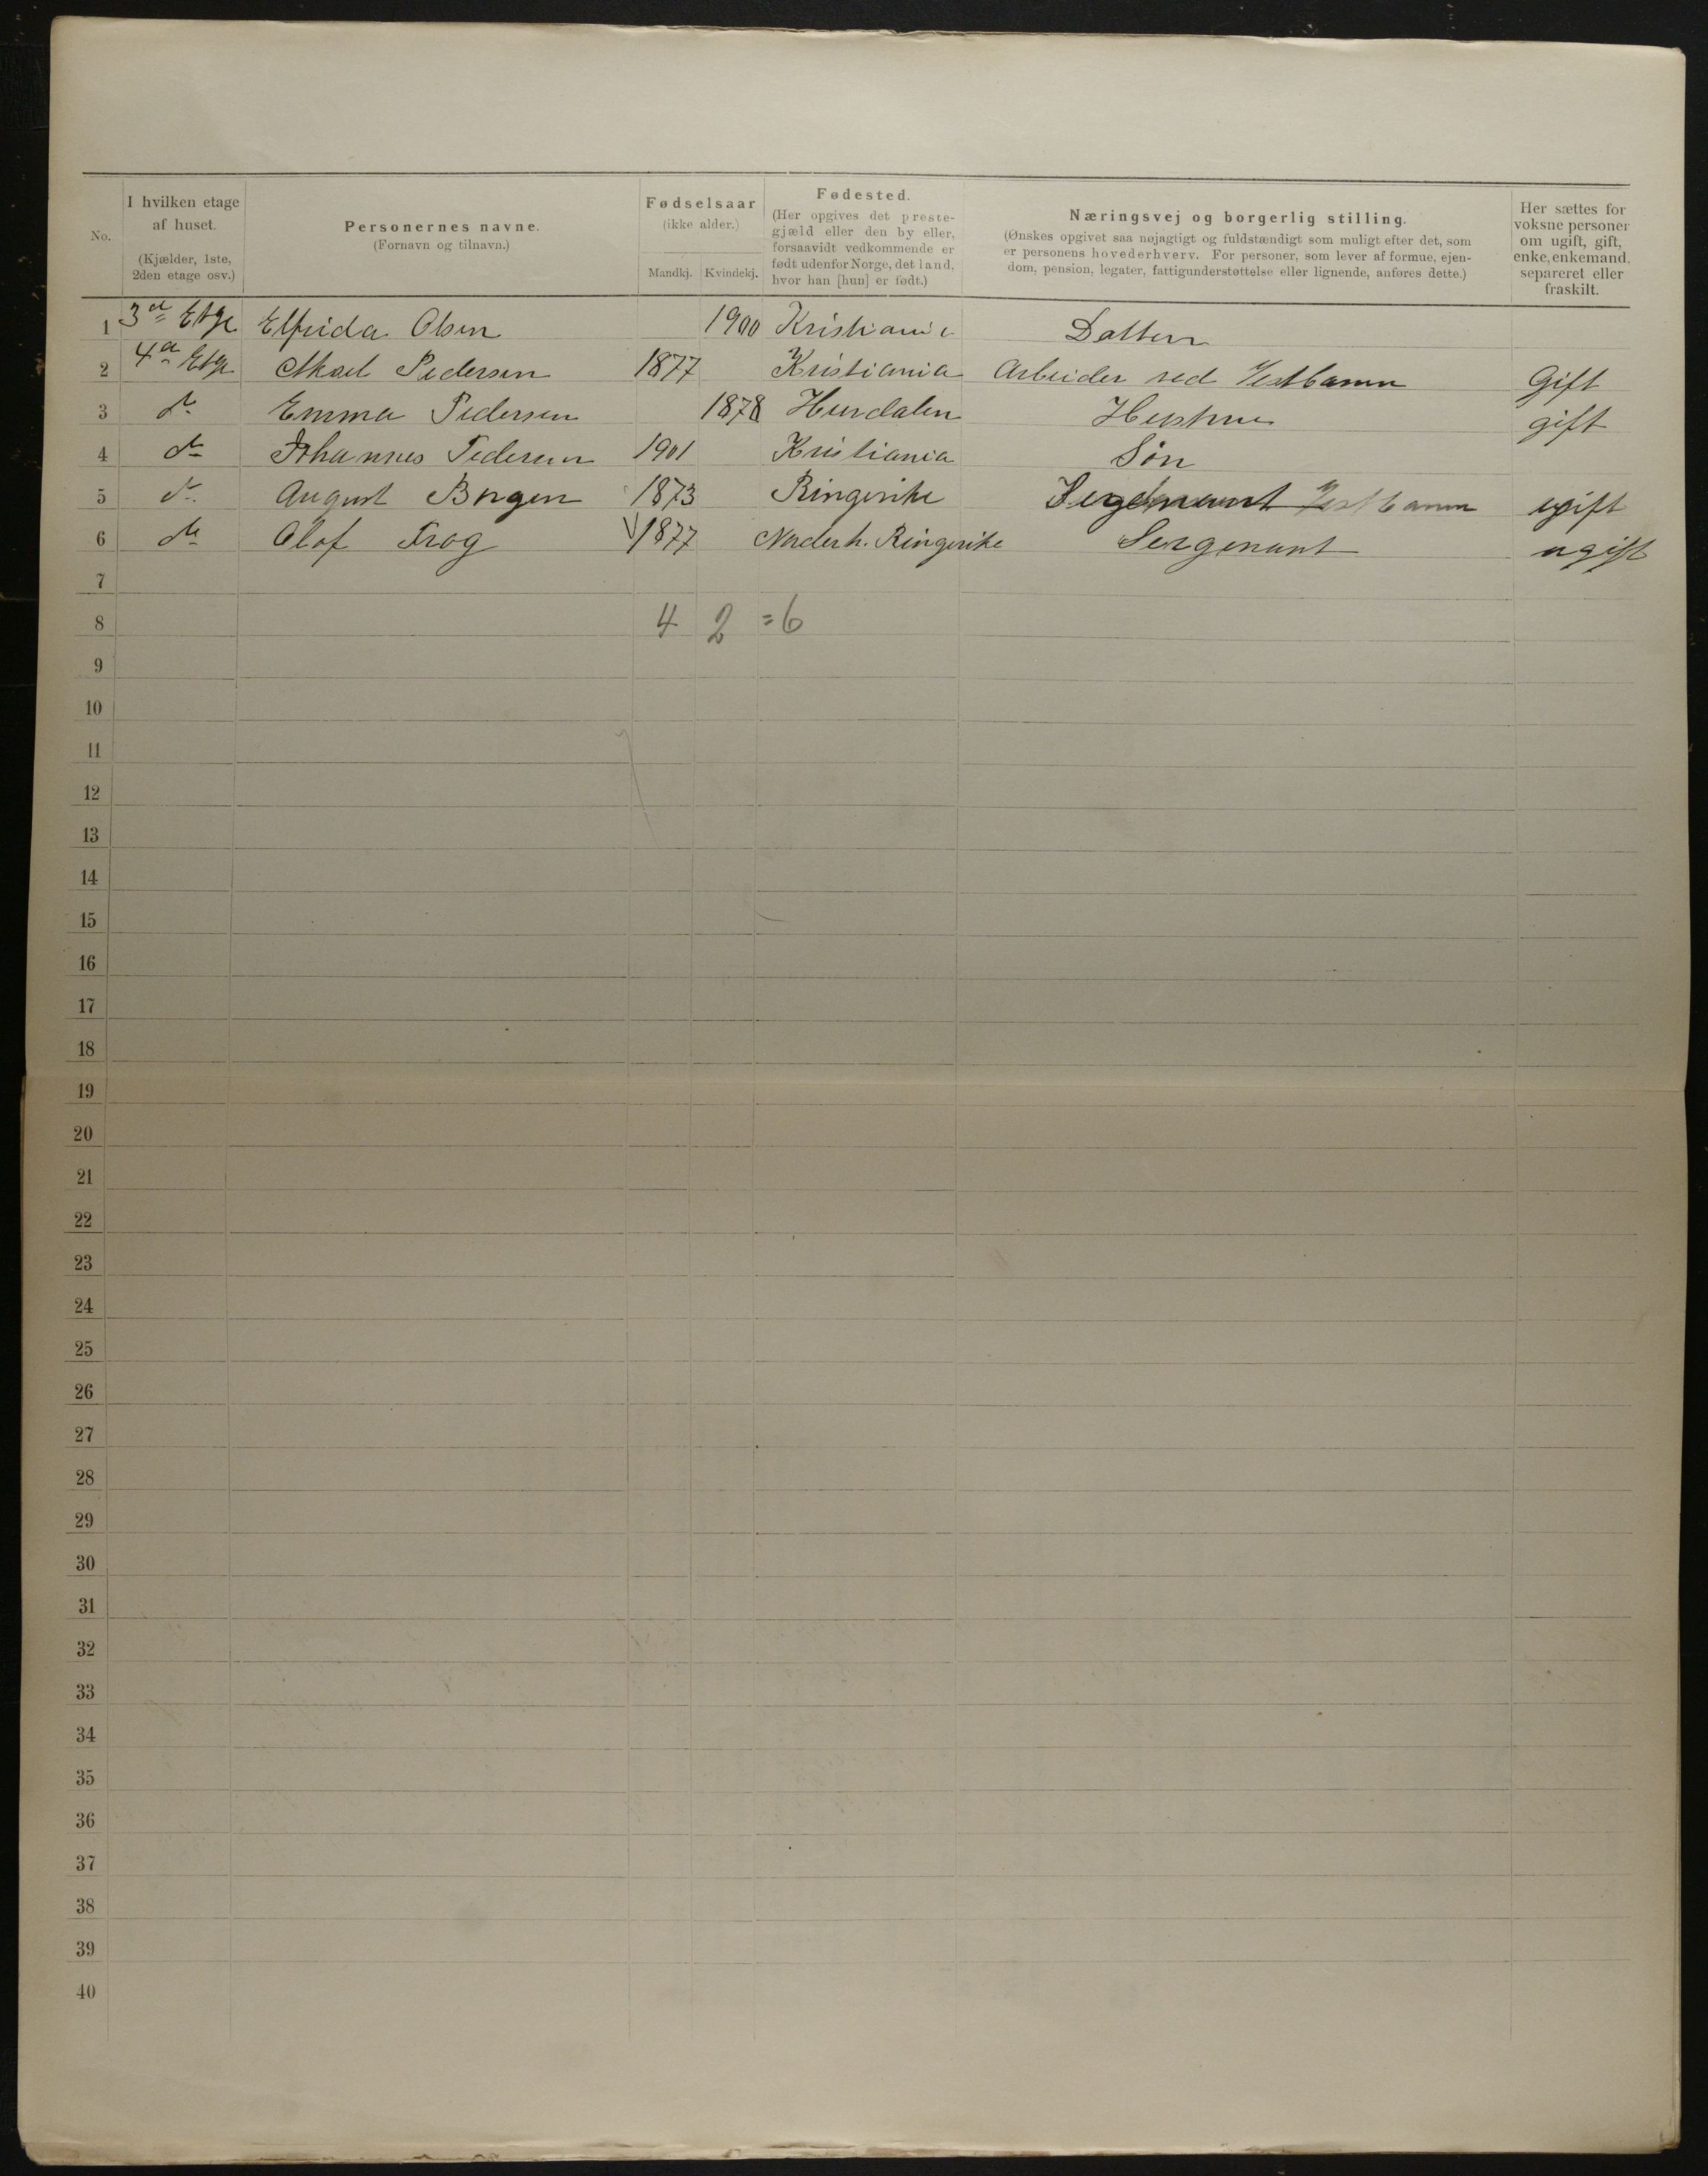 No.
I hvilken etage af huset.
(Kjælder, 1ste, 2den etage osv.)
Personernes navne.
(Fornavn og tilnavn.)
Fødselsaar
(ikke alder.)
Mandkj. Kvindekj.
Fødested.
(Her opgives det preste-
gjæld eller den by eller,
forsaavidt vedkommende er
født udenfor Norge, det land,
hvor han [hun] er født.)
Næringsvej og borgerlig stilling.
(Ønskes opgivet saa nøjagtigt og fuldstændigt som muligt efter det, som
er personens hovederhverv. For personer, som lever af formue, ejen-
dom, pension, legater, fattigunderstøttelse eller lignende, anføres dette.)
Her sættes for
voksne personer
om ugift, gift,
enke, enkemand,
separeret eller
fraskilt.
1 3d Etge Elfrida Olsen 1900 Kristiania Datter
2 4d Etge Pedersen 1877 Kristiania Arbeider ved Vestbanen Gift
3 do Emma Pedersen 1878 Hurdalen Hustrue gift
4 do Johannes Pedersen 1901 Kristiania Søn
5 do August Borgen 1873 Ringerike Vestbanen ugift
6 do Olof Frog 1877 Norderh. Ringerike Sergenant ugift
7
8 4 2 =6
9
10
11
12
13
14
15
16
17
18
19
20
21
22
23
24
25
26
27
28
29
30
31
32
33
34
35
36
37
38
39
40